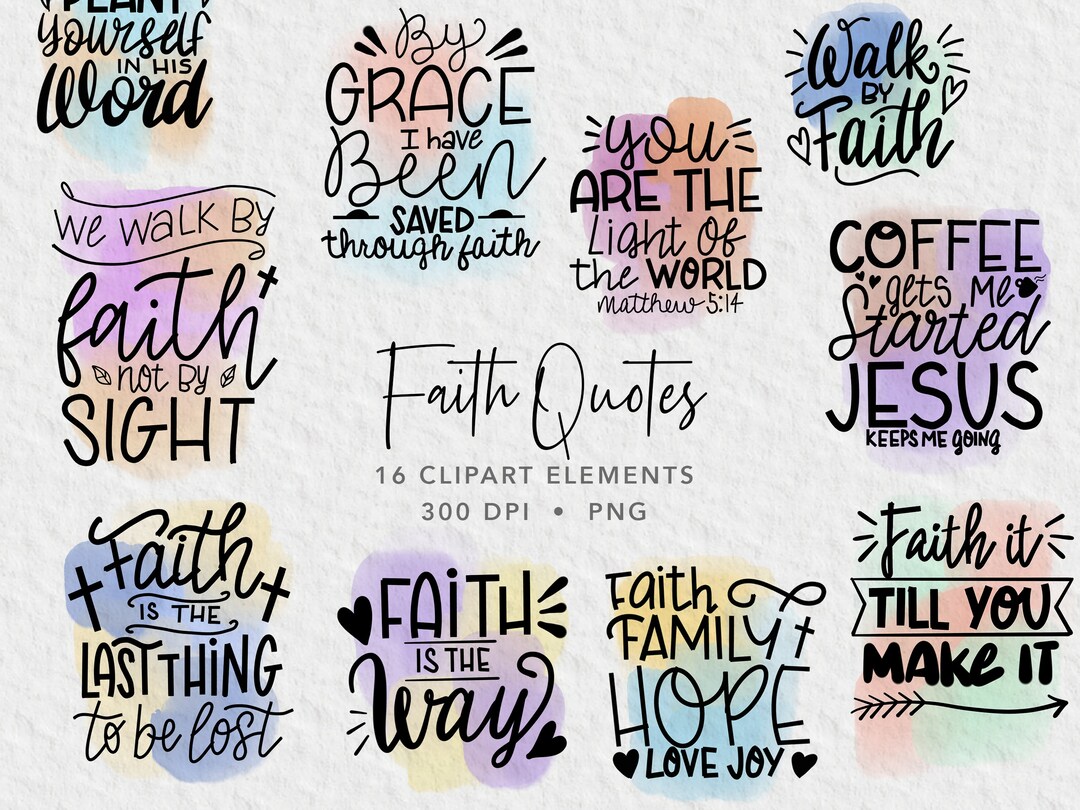 PLANT
yourself
IN HIS
Word
By
GRACE
I have
Been
SAVED
through faith
you
ARE THE
Light Of
the WORLD
Matthew 5:14
Walk
BY
Faith
We WALK By
faith
not By
SIGHT
COFFEE
gets Me
Started
JESUS
KEEPS ME GOING
Faith Quotes
16 CLIPART ELEMENTS
300 DPI • PNG
Faith
IS THE
LAST THING
to be lost
FAiTH
IS THE
Way
Faith
FAMILY
HOPE
LOVE JOY
Faith it
TILL YOU
MAKE IT